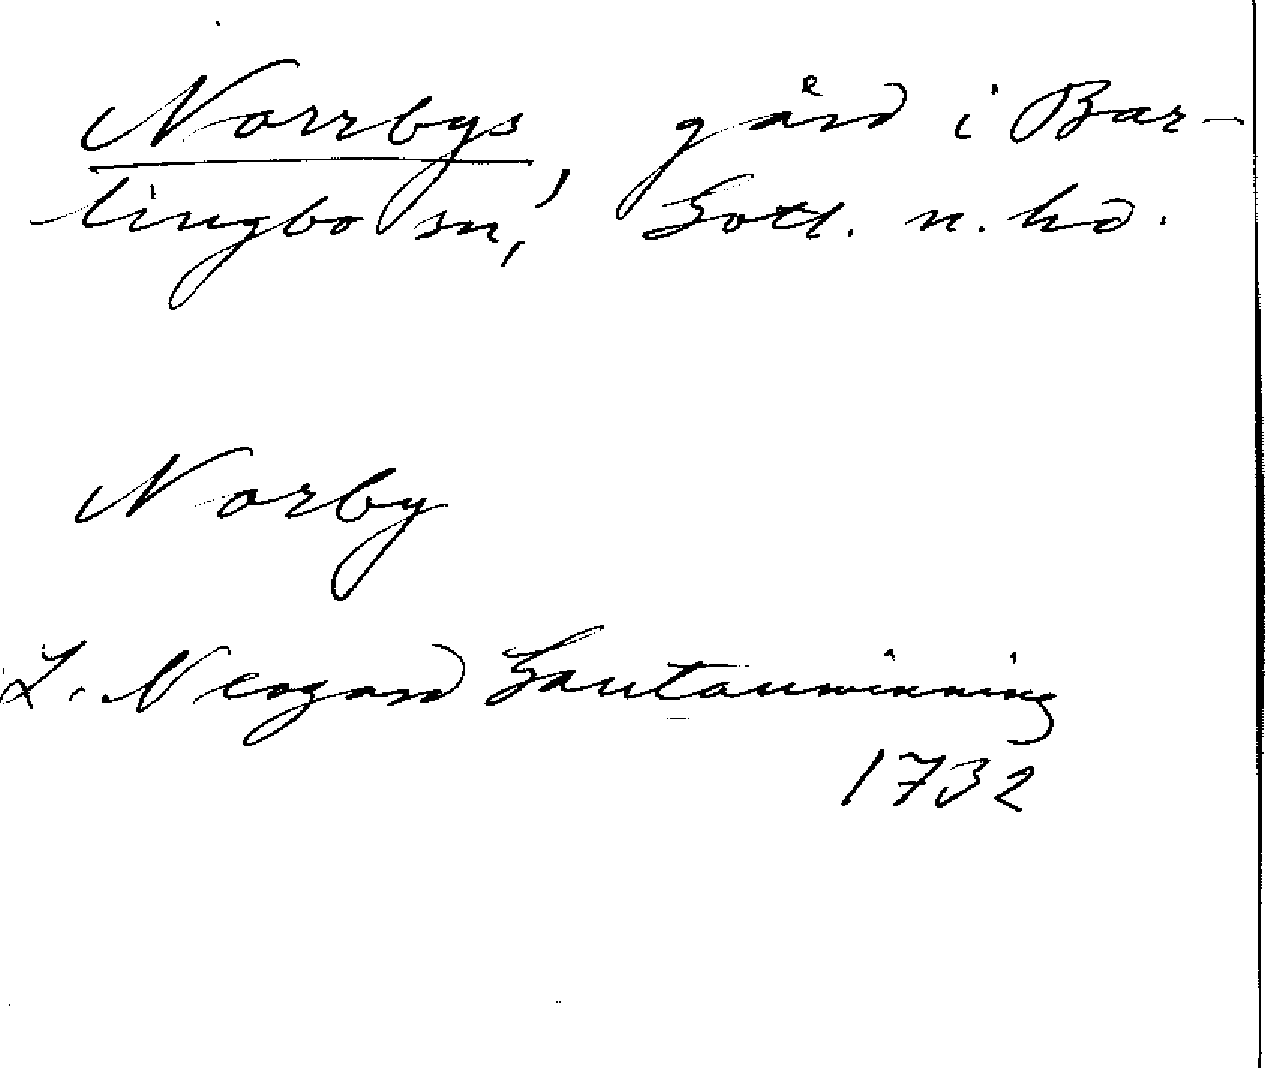 Norrbys, gård i Bar-
lingbo sn, Gotl. n. hd.
Norby
L. Neogard Gautauminning
1732